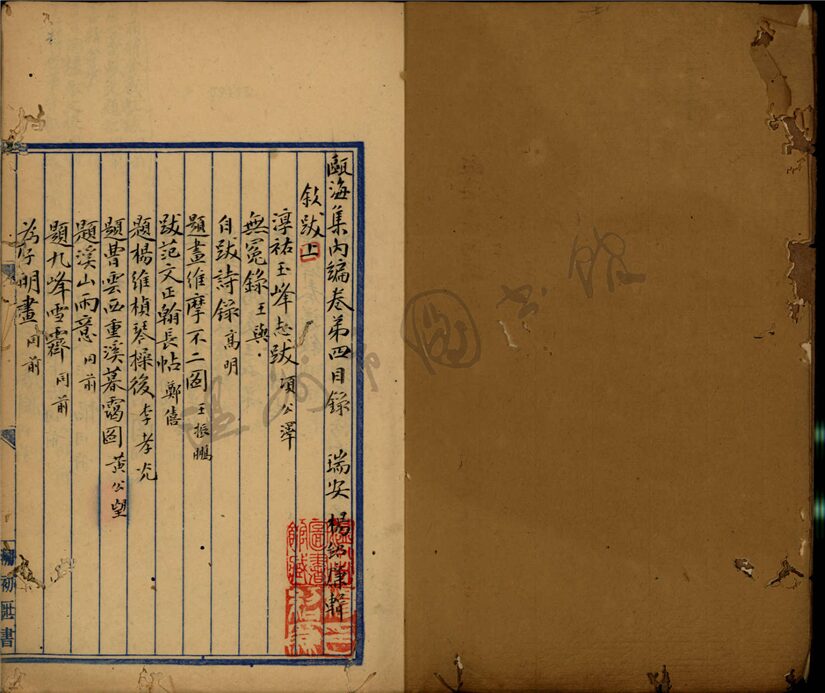 甌海集內編卷第四目錄 瑞安 楊紹廉輯
敘跋上
淳祐玉峰志跋 項公澤
無冤錄 王與
自跋詩錄 高明
題畫維摩不二圖 王振鵬
跋范文正翰長帖 鄭僖
題楊維楨琴操後 李孝光
題曹雲西重溪暮靄圖 黃公望
題溪山雨意 同前
題九峰雪霽 同前
為子明畫 同前
溫州市圖書館